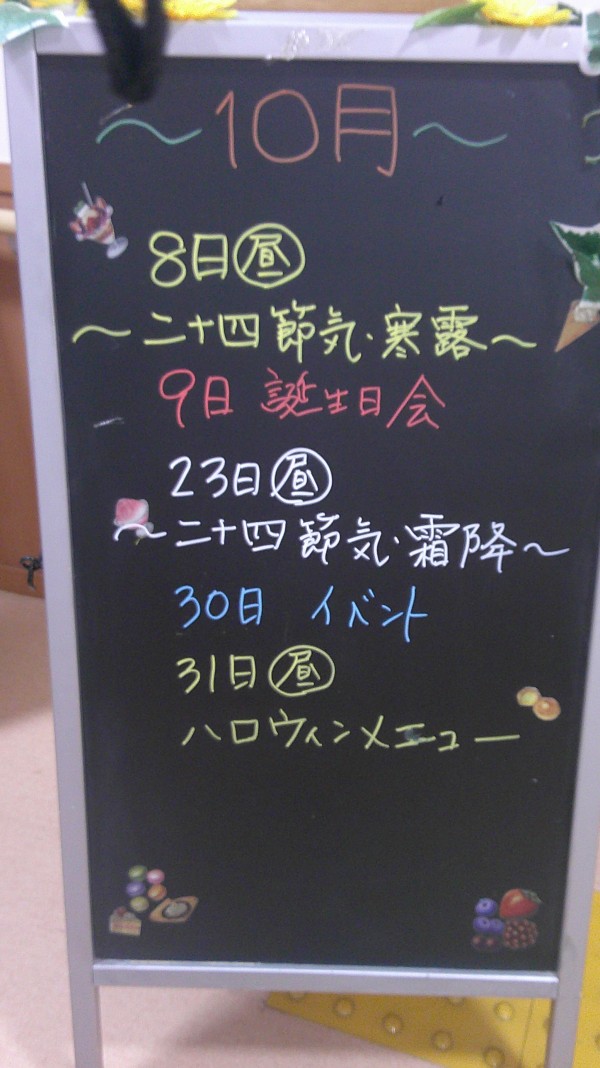 ～10月～
8日㊐昼
～二十四節気・寒露～
9日 誕生日会
23日昼
～二十四節気・霜降～
30日 イベント
31日昼
ハロウィンメニュー